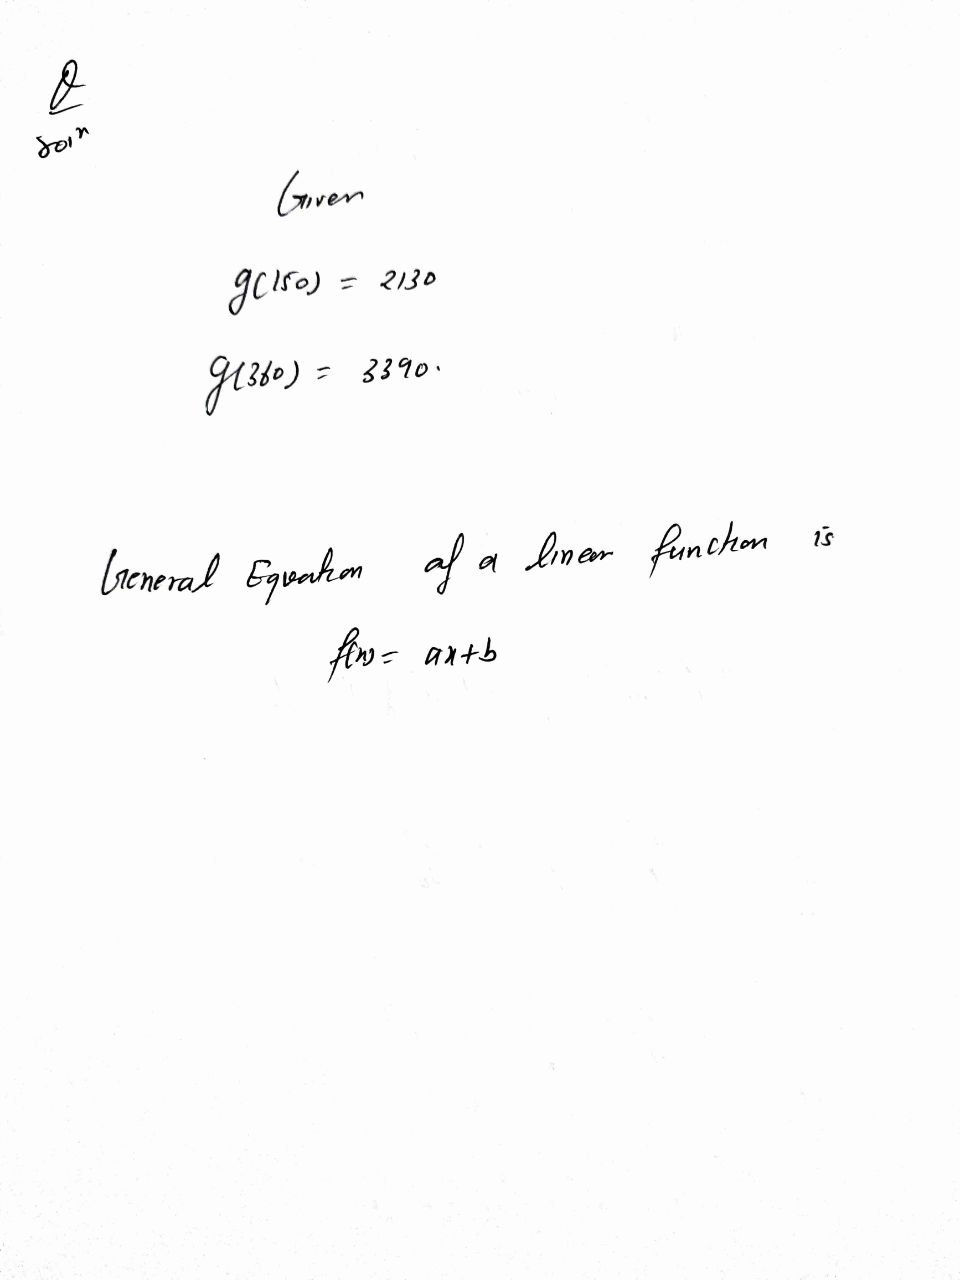 Q
Soln
Given
g(150) = 2130
g(360) = 3390.
General Equation of a linear function is
f(x) = ax+b